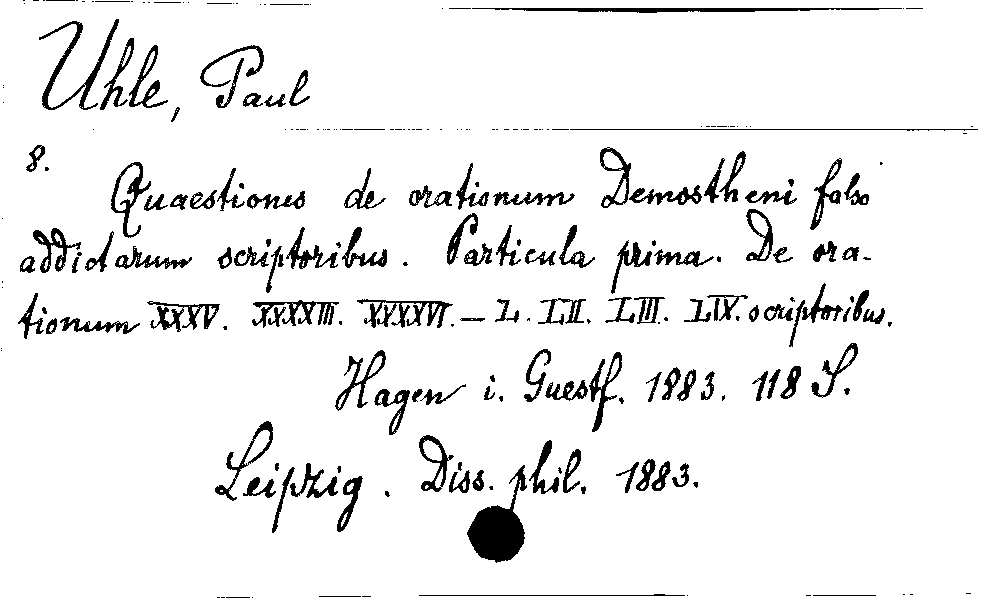 Uhle, Paul
8.
Quaestiones de orationum Demostheni falso
addictarum scriptoribus. Particula prima. De ora-
tionum XXXV. XXXXIII. XXXXVI.–L. LII. LIII. LIX. scriptoribus.
Hagen i. Guestf. 1883. 118 S.
Leipzig. Diss. phil. 1883.